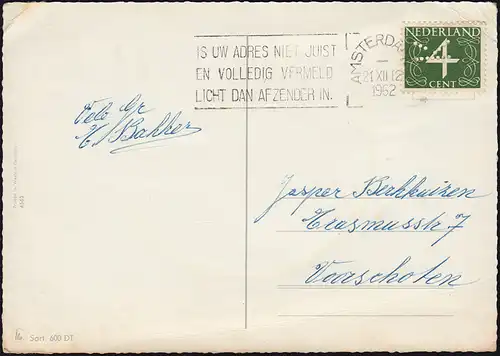 IS UW ADRES NIET JUIST
EN VOLLEDIG VERMELD
LICHT DAN AFZENDER IN.
AMSTERDA
21 XII 12
1952
NEDERLAND
4
CENT
Vele Gr
E. Bakker
Jasper Berkhuizen
Erasmusstr 7
Voorschoten
Sort. 600 DT